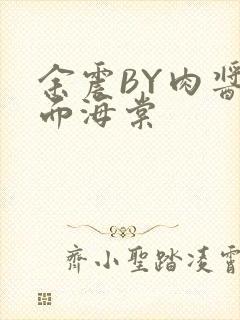 余震BY肉醬
而海棠
齊小聖踏凌霄